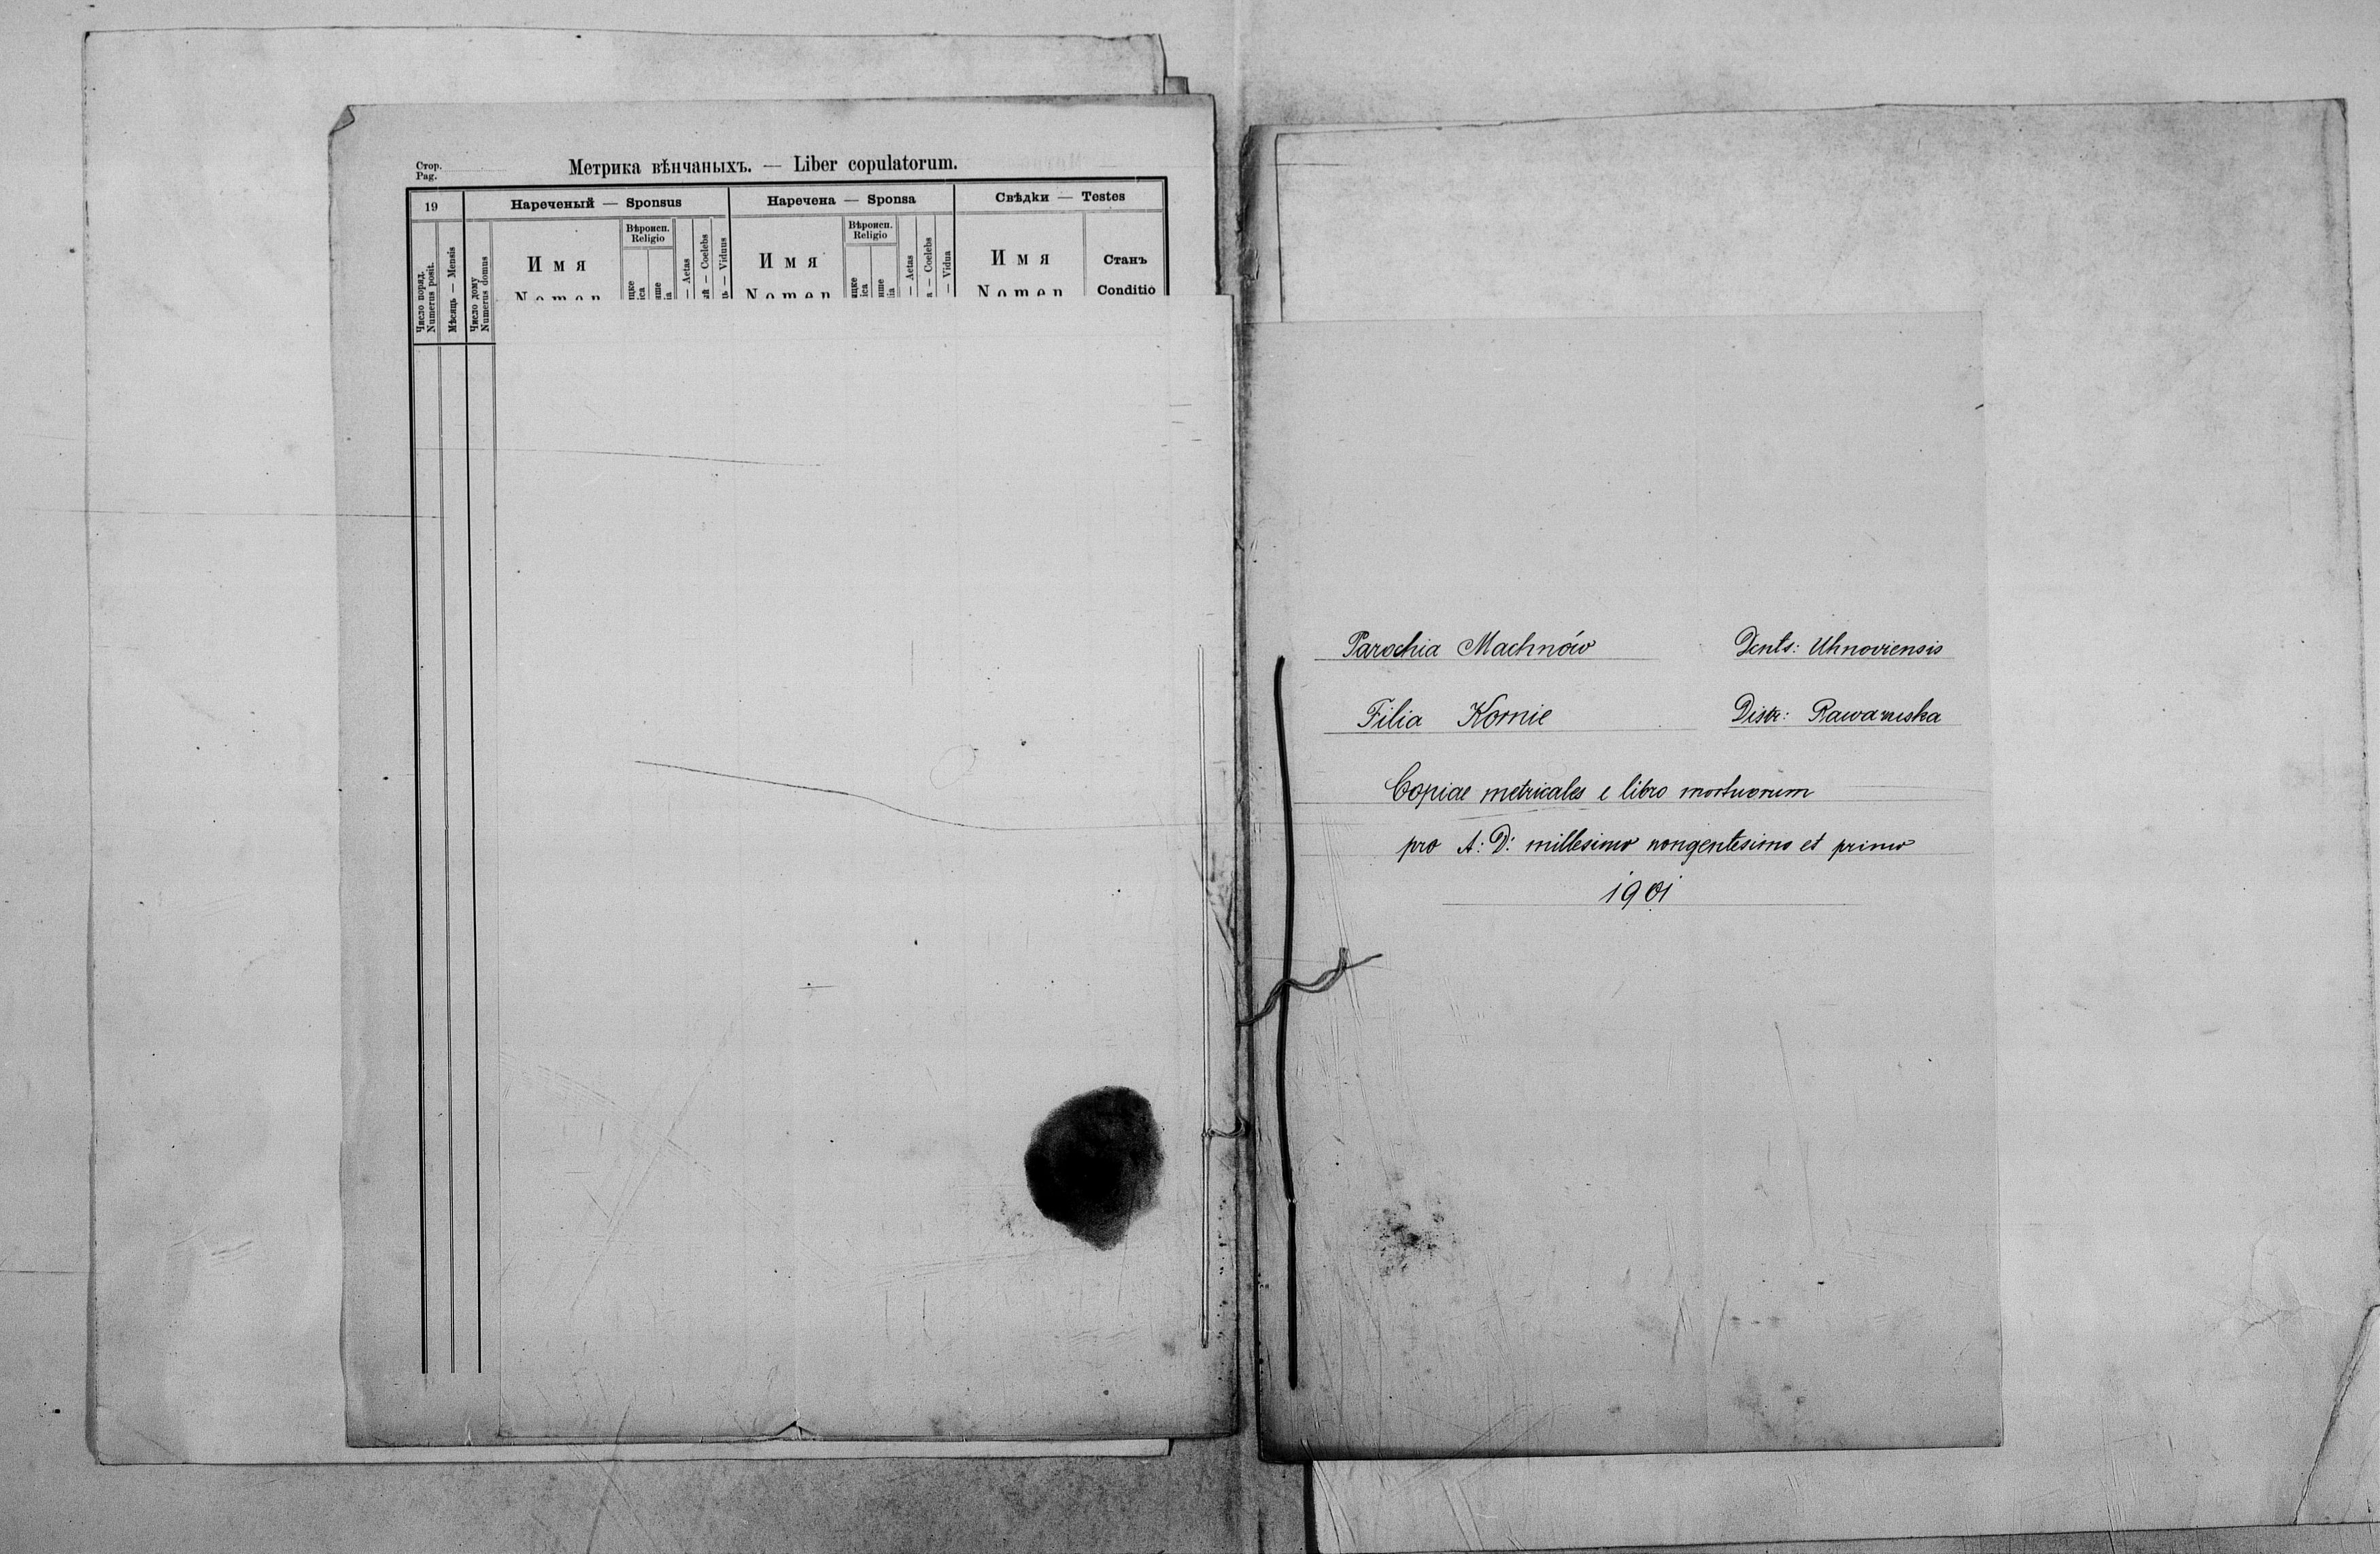 Стор.
Pag.
Метрика вѣнчаныхъ. — Liber copulatorum.
19
Нареченый — Sponsus
Наречена — Sponsa
Свѣдки — Testes
Число поряд.
Numerus posit.
Мѣсяць — Mensis
Число дому
Numerus domus
Имя
Nomen
Вѣроисп.
Religio
— Aetas
— Coelebs
— Viduus
Имя
Nomen
Вѣроисп.
Religio
— Aetas
— Coelebs
— Vidua
Имя
Nomen
Станъ
Conditio
Parochia Machnów
Dcnts: Uhnoviensis
Filia Kornie
Distr: Rawaruska
Copiae metricales e libro mortuorum
pro A: D: millesimo nongentesimo et primo
1901